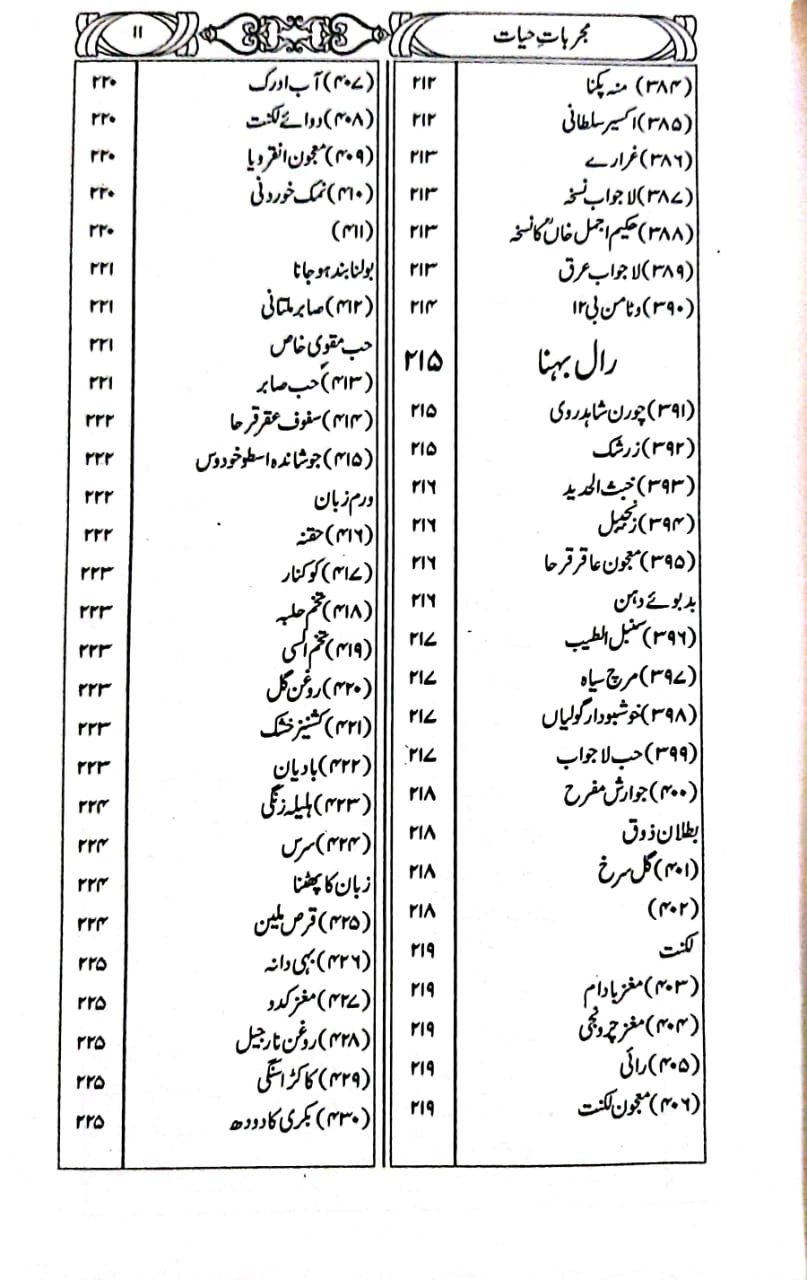 مجرباتِ حیات
۱۱
(۳۸۴) منہ پکنا ۲۱۲
(۳۸۵) اکسیر سلطانی ۲۱۲
(۳۸۶) غرارے ۲۱۳
(۳۸۷) لاجواب نسخہ ۲۱۳
(۳۸۸) حکیم اجمل خاںؒ کا نسخہ ۲۱۳
(۳۸۹) لاجواب عرق ۲۱۳
(۳۹۰) وٹامن بی ۱۲ ۲۱۴
رال بہنا ۲۱۵
(۳۹۱) چورن شاہدروی ۲۱۵
(۳۹۲) زرشک ۲۱۵
(۳۹۳) خبث الحدید ۲۱۶
(۳۹۴) زنجبیل ۲۱۶
(۳۹۵) معجون عاقر قرحا ۲۱۶
بدبوئے دہن ۲۱۶
(۳۹۶) سنبل الطیب ۲۱۷
(۳۹۷) مرچ سیاہ ۲۱۷
(۳۹۸) خوشبودار گولیاں ۲۱۷
(۳۹۹) حب لاجواب ۲۱۷
(۴۰۰) جوارش مفرح ۲۱۸
بطلان ذوق ۲۱۸
(۴۰۱) گل سرخ ۲۱۸
(۴۰۲) ۲۱۸
لکنت ۲۱۹
(۴۰۳) مغز بادام ۲۱۹
(۴۰۴) مغز چرونجی ۲۱۹
(۴۰۵) رائی ۲۱۹
(۴۰۶) معجون لکنت ۲۱۹
(۴۰۷) آب ادرک ۲۲۰
(۴۰۸) دوائے لکنت ۲۲۰
(۴۰۹) معجون انقرویا ۲۲۰
(۴۱۰) نمک خوردنی ۲۲۰
(۴۱۱) ۲۲۰
بولنا بند ہو جانا ۲۲۱
(۴۱۲) صابر ملتانی ۲۲۱
حب مقوی خاص ۲۲۱
(۴۱۳) حب صابر ۲۲۱
(۴۱۴) سفوف عقر قرحا ۲۲۲
(۴۱۵) جوشاندہ اسطوخودوس ۲۲۲
ورم زبان ۲۲۲
(۴۱۶) حقنہ ۲۲۲
(۴۱۷) کوکنار ۲۲۳
(۴۱۸) تخم حلبہ ۲۲۳
(۴۱۹) تخم السی ۲۲۳
(۴۲۰) روغن گل ۲۲۳
(۴۲۱) کشنیز خشک ۲۲۳
(۴۲۲) بادیان ۲۲۳
(۴۲۳) ہلیلہ زنگی ۲۲۴
(۴۲۴) سرس ۲۲۴
زبان کا پھٹنا ۲۲۴
(۴۲۵) قرص ملین ۲۲۴
(۴۲۶) بہی دانہ ۲۲۵
(۴۲۷) مغز کدو ۲۲۵
(۴۲۸) روغن نارجیل ۲۲۵
(۴۲۹) کاکڑاسنگی ۲۲۵
(۴۳۰) بکری کا دودھ ۲۲۵